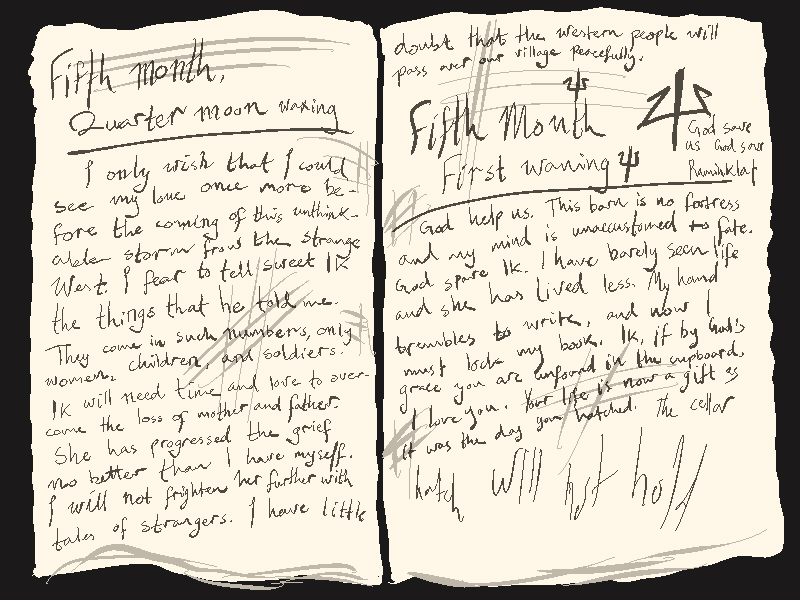 Fifth month,
Quarter moon waxing
I only wish that I could
see my love once more be-
fore the coming of this unthink-
able storm from the strange
West. I fear to tell sweet Ik
the things that he told me.
They come in such numbers, only
women, children, and soldiers.
Ik will need time and love to over-
come the loss of mother and father.
She has progressed the grief
no better than I have myself.
I will not frighten her further with
tales of strangers. I have little
doubt that the western people will
pass over our village peacefully.
Fifth Month
First waning
God save
us God save
Ruminklaf
God help us. This barn is no fortress
and my mind is unaccustomed to fate.
God spare Ik. I have barely seen life
and she has lived less. My hand
trembles to write, and now I
must lock my book. Ik, if by God's
grace you are unfound in the cupboard,
I love you. Your life is now a gift as
it was the day you hatched. The cellar
hatch will not hold